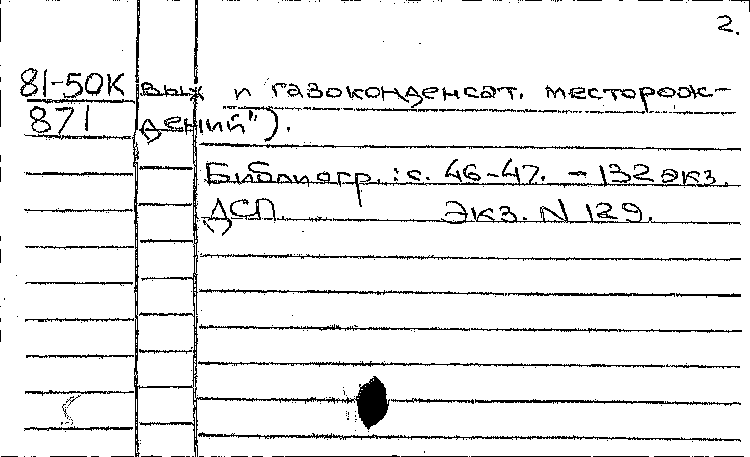 2.
81-50К вых и газоконденсат. месторож-
871 дений").
Библиогр.: с. 46-47. - 132 экз.
ДСП. Экз. N 129.